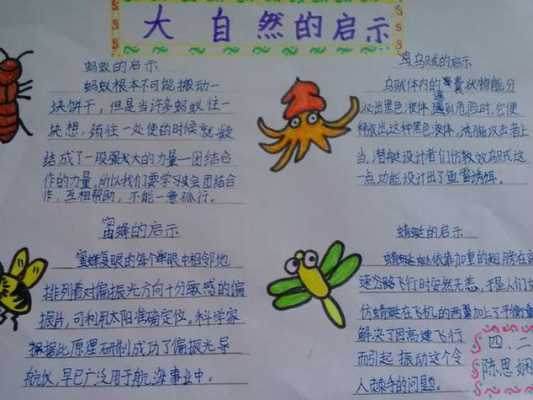 大自然的启示
蚂蚁的启示
蚂蚁根本不可能搬动一
块饼干，但是当许多蚂蚁往一
块想，
结成了一股强大的力量—团结合
作的力量，所以我们要学习会团结合
作，互相帮助，不能一意孤行。
乌贼的启示
乌贼体内的囊状物能分
泌出黑色液体，遇到危险时，它便
释放出这种黑色液体，
潜艇设计者们仿效乌贼这
一点功能设计出了鱼雷诱饵。
蜜蜂的启示
蜜蜂复眼的每个单眼中相邻地
排列着对偏振光方向十分敏感的偏
振片，可利用太阳准确定位。科学家
根据此原理研制成功了偏振光导
航仪，早已广泛用于航海事业中。
蜻蜓的启示
蜻蜓依靠加重的翅膀在高
速飞行时安然无恙，于是人们
仿蜻蜓在飞机的两翼加上了平衡重
解决了因高速飞行
而引起振动这个令
人棘手的问题。
四、二
陈思娴